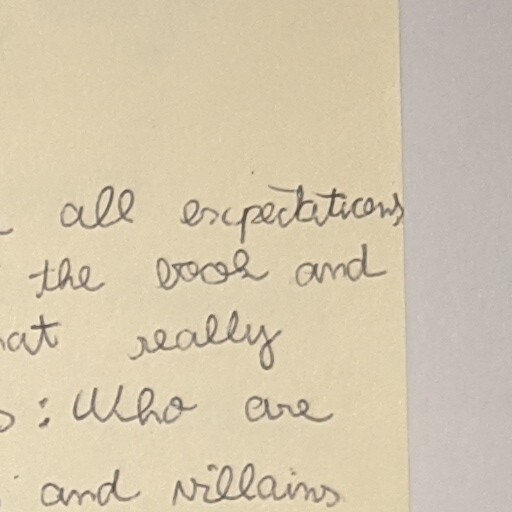 all expectations
the book and
really
: Who are
and villains